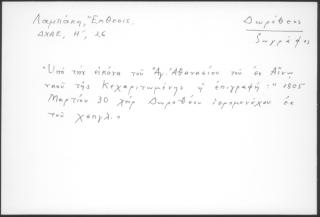 Λαμπάκη, Ἔκθεσις.
ΔΧΑΕ, Η΄, 26
Δωρόθεος
ζωγράφος
"Ὑπό τήν εἰκόνα τοῦ Ἁγ. Ἀθανασίου τοῦ ἐν Αἴνῳ
ναοῦ τῆς Κεχαριτωμένης ἡ ἐπιγραφή: "1805
Μαρτίου 30 χείρ Δωροθέου ἱερομονάχου ἐκ
τοῦ